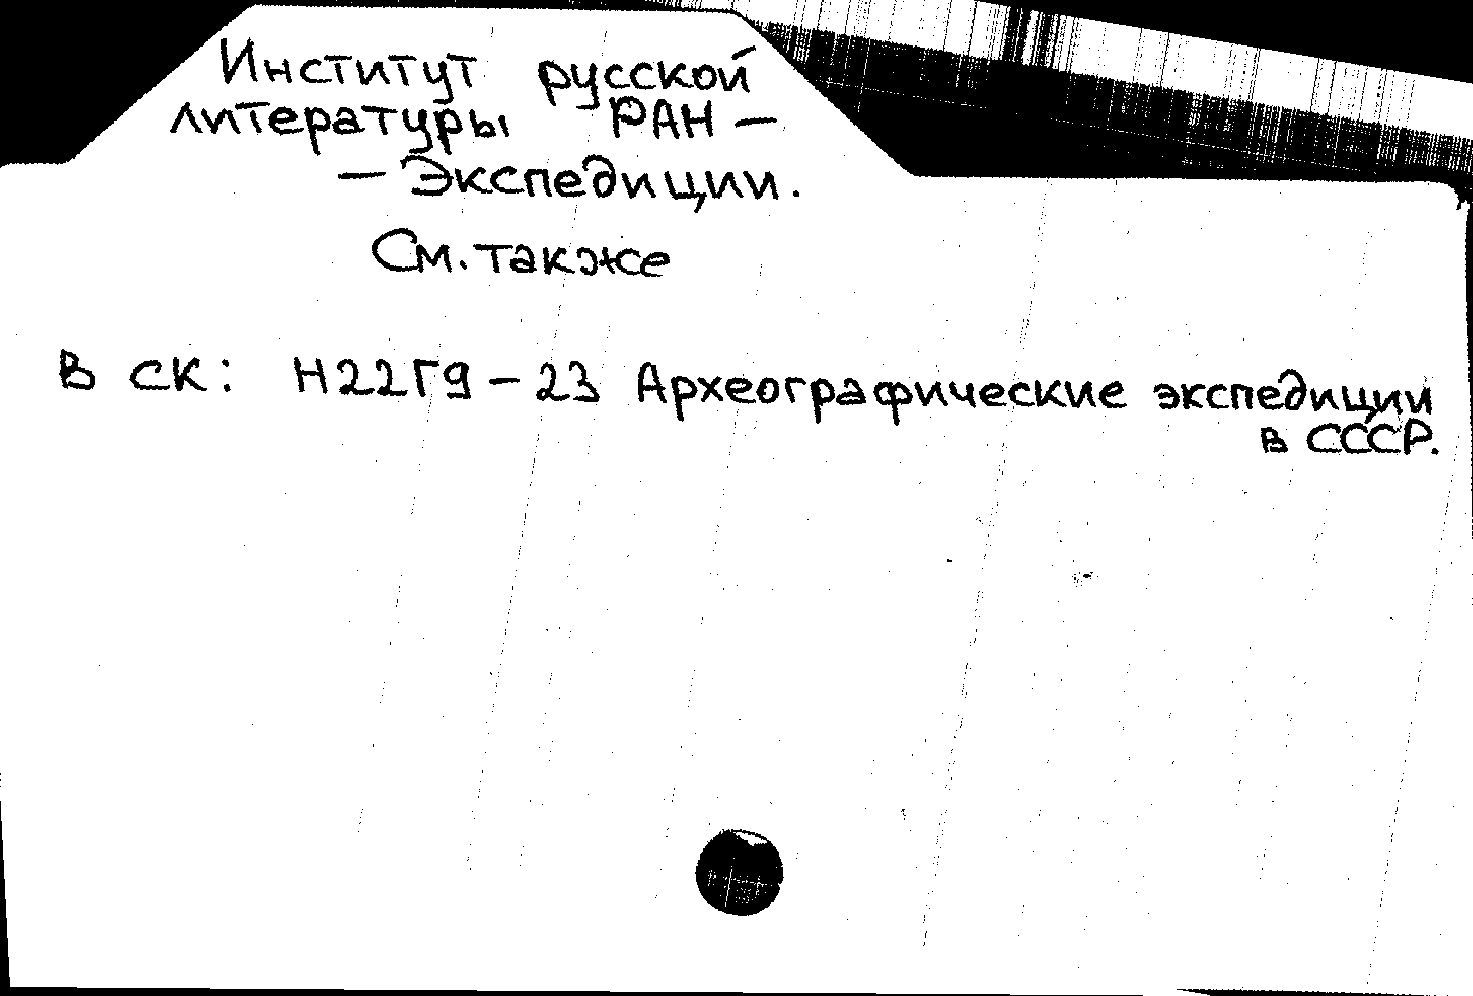 Институт русской
литературы РАН —
— Экспедиции.
См. также
В СК: Н22Г9 – 23 Археографические экспедиции
в СССР.